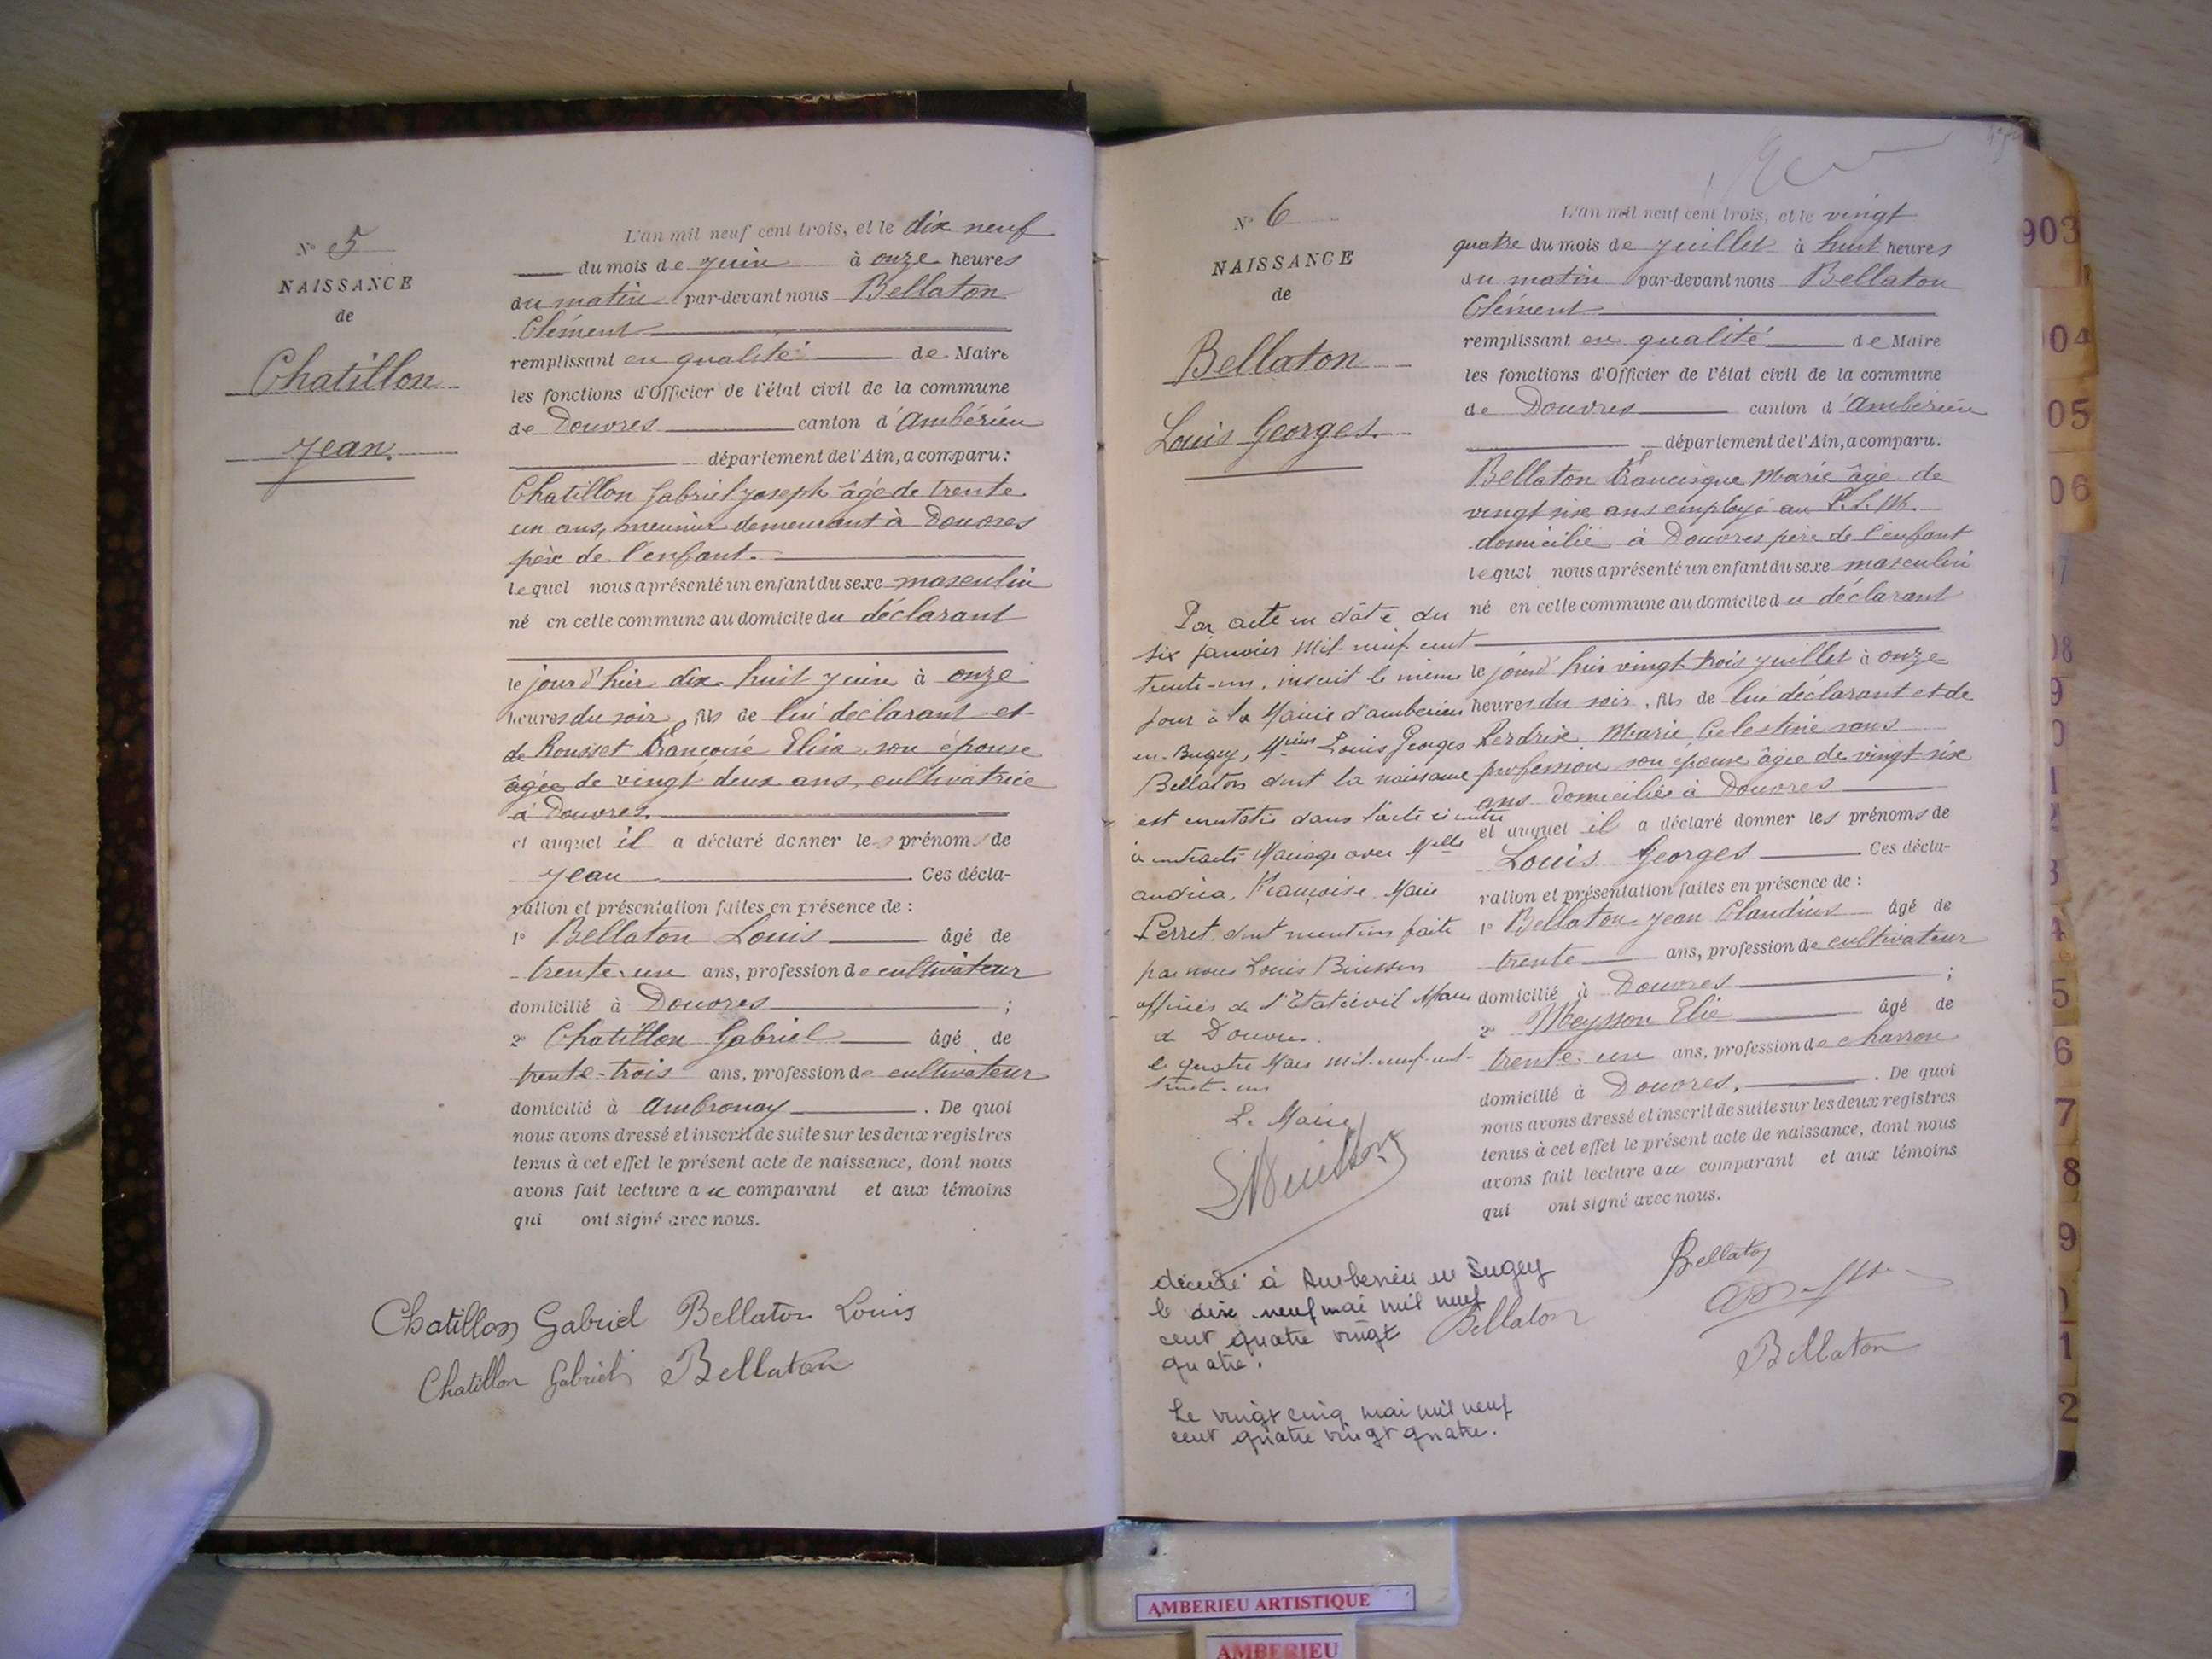 N° 5
NAISSANCE
de
Chatillon
Jean.
L'an mil neuf cent trois, et le dix neuf
du mois de Juin à onze heures
du matin par-devant nous Bellaton
Clément
remplissant en qualité de Maire
les fonctions d'Officier de l'état civil de la commune
de Douvres canton d'Ambérieu
département de l'Ain, a comparu:
Chatillon Gabriel Joseph âgé de trente
un ans, meunier demeurant à Douvres
père de l'enfant.
lequel nous a présenté un enfant du sexe masculin
né en cette commune au domicile du déclarant
le jour d'hier dix huit Juin à onze
heures du soir, fils de lui déclarant et
de Rousset Françoise Elisa son épouse
âgée de vingt deux ans, cultivatrice
à Douvres.
et auquel il a déclaré donner les prénoms de
Jean. Ces décla-
ration et présentation faites en présence de :
1° Bellaton Louis âgé de
trente-un ans, profession de cultivateur
domicilié à Douvres ;
2° Chatillon Gabriel âgé de
trente-trois ans, profession de cultivateur
domicilié à Ambronay. De quoi
nous avons dressé et inscrit de suite sur les deux registres
tenus à cet effet le présent acte de naissance, dont nous
avons fait lecture au comparant et aux témoins
qui ont signé avec nous.
Chatillon Gabriel Bellaton Louis
Chatillon Gabriel Bellaton
N° 6
NAISSANCE
de
Bellaton
Louis Georges.
L'an mil neuf cent trois, et le vingt
quatre du mois de Juillet à huit heures
du matin par-devant nous Bellaton
Clément
remplissant en qualité de Maire
les fonctions d'Officier de l'état civil de la commune
de Douvres canton d'Ambérieu
département de l'Ain, a comparu.
Bellaton Francisque Marie âgé de
vingt six ans employé au P.L.M.
domicilié à Douvres père de l'enfant
lequel nous a présenté un enfant du sexe masculin
né en cette commune au domicile du déclarant
le jour d'hier vingt trois Juillet à onze
heures du soir, fils de lui déclarant et de
Perdrix Marie Celestine sans
profession son épouse âgée de vingt six
ans domiciliée à Douvres
et auquel il a déclaré donner les prénoms de
Louis Georges Ces décla-
ration et présentation faites en présence de :
1° Bellaton Jean Claudius âgé de
trente ans, profession de cultivateur
domicilié à Douvres ;
2° Meysson Elie âgé de
trente-un ans, profession de charron
domicilié à Douvres. De quoi
nous avons dressé et inscrit de suite sur les deux registres
tenus à cet effet le présent acte de naissance, dont nous
avons fait lecture au comparant et aux témoins
qui ont signé avec nous.
Bellaton
Bellaton
Bellaton
Par acte en date du
six janvier Mil-neuf-cent
trente-un, inscrit le même
jour à la Mairie d'Ambérieu
en-Bugey, Louis Georges
Bellaton dont la naissance
est constatée dans l'acte ci contre
a contracté Mariage avec Melle
Andréa, Françoise, Marie
Perret. dont mention faite
par nous Louis Buisson
officier de l'Etat civil Maire
de Douvres.
le quatre Mars mil-neuf-cent-
trente-un
Le Maire
LBuisson
décédé à Ambérieu en Bugey
le dix neuf mai mil neuf
cent quatre vingt
quatre.
Le vingt cinq mai mil neuf
cent quatre vingt quatre.
903
04
05
06
7
08
9
0
1
2
3
4
5
6
7
8
9
1
2
AMBERIEU ARTISTIQUE
AMBERIEU